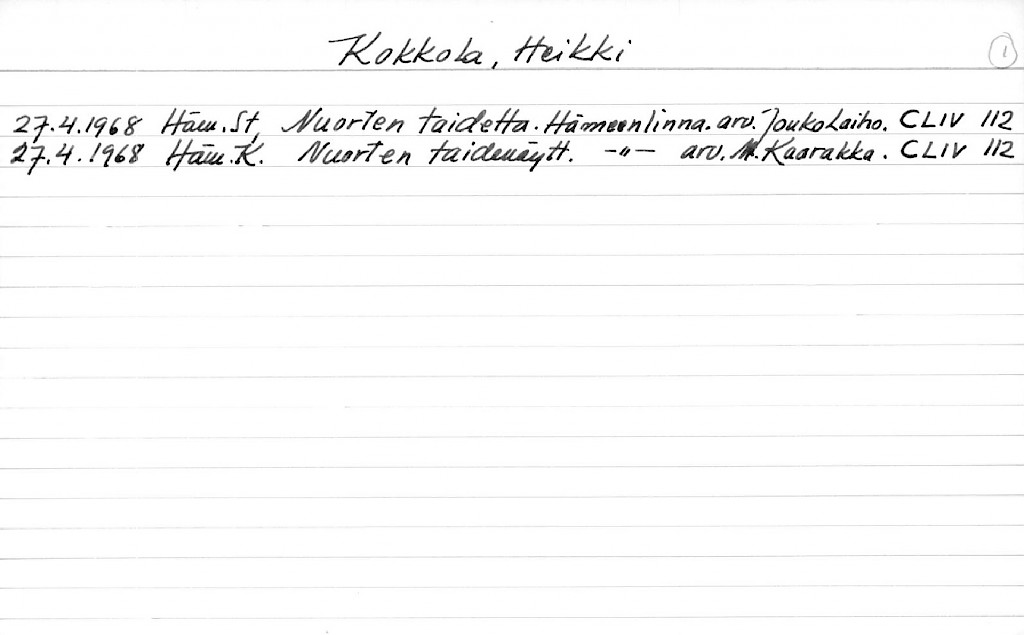 Kokkola, Heikki 1
27.4.1968 Häm.St, Nuorten taidetta. Hämeenlinna. arv. Jouko Laiho. CLIV 112
27.4.1968 Häm.K. Nuorten taidenäytt. -"- arv. M. Kaarakka. CLIV 112